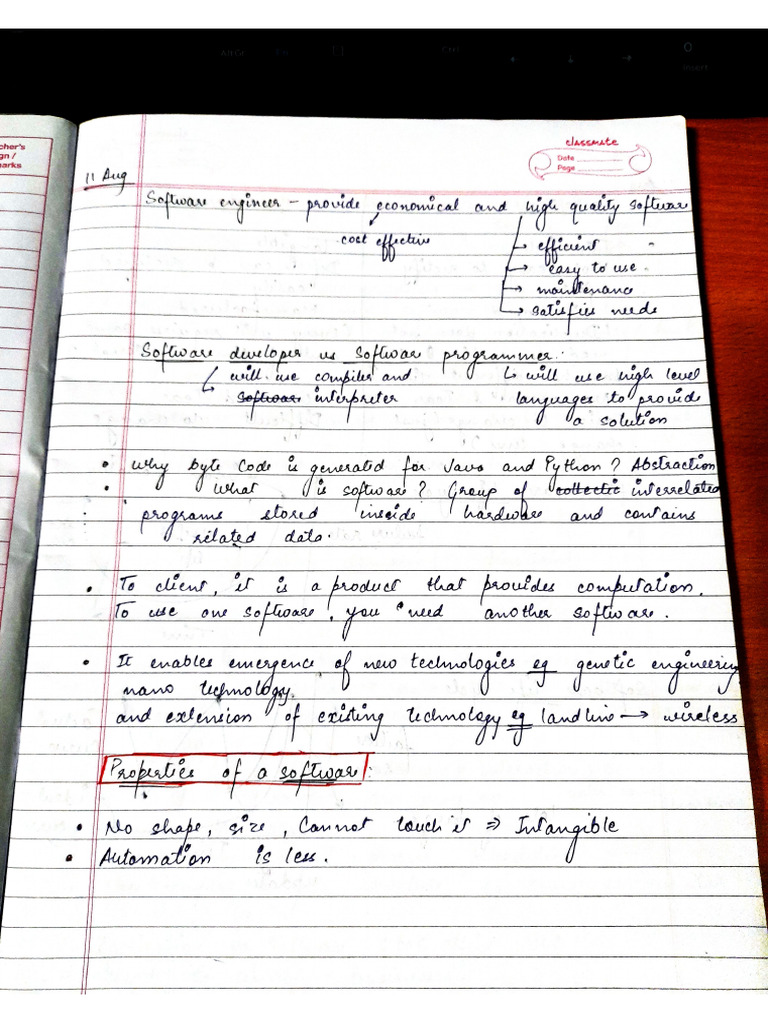 AltGr
Ctrl
Insert
cher's
gn /
marks
classmate
Date
Page
11 Aug
Software engineer – provide economical and high quality software
cost effective
efficient
easy to use
maintenance
satisfies needs
Software developer vs Software programmer.
will use compiler and
interpreter
will use high level
languages to provide
a solution
• Why byte Code is generated for Java and Python? Abstraction
• What is software? Group of collectic interrelated
programs stored inside hardware and contains
related data.
• To client, it is a product that provides computation.
To use one software, you need another software.
• It enables emergence of new technologies eg genetic engineering
nano technology.
and extension of existing technology eg landline → wireless
Properties of a software.
• No shape, size, Cannot touch it ⇒ Intangible
• Automation is less.